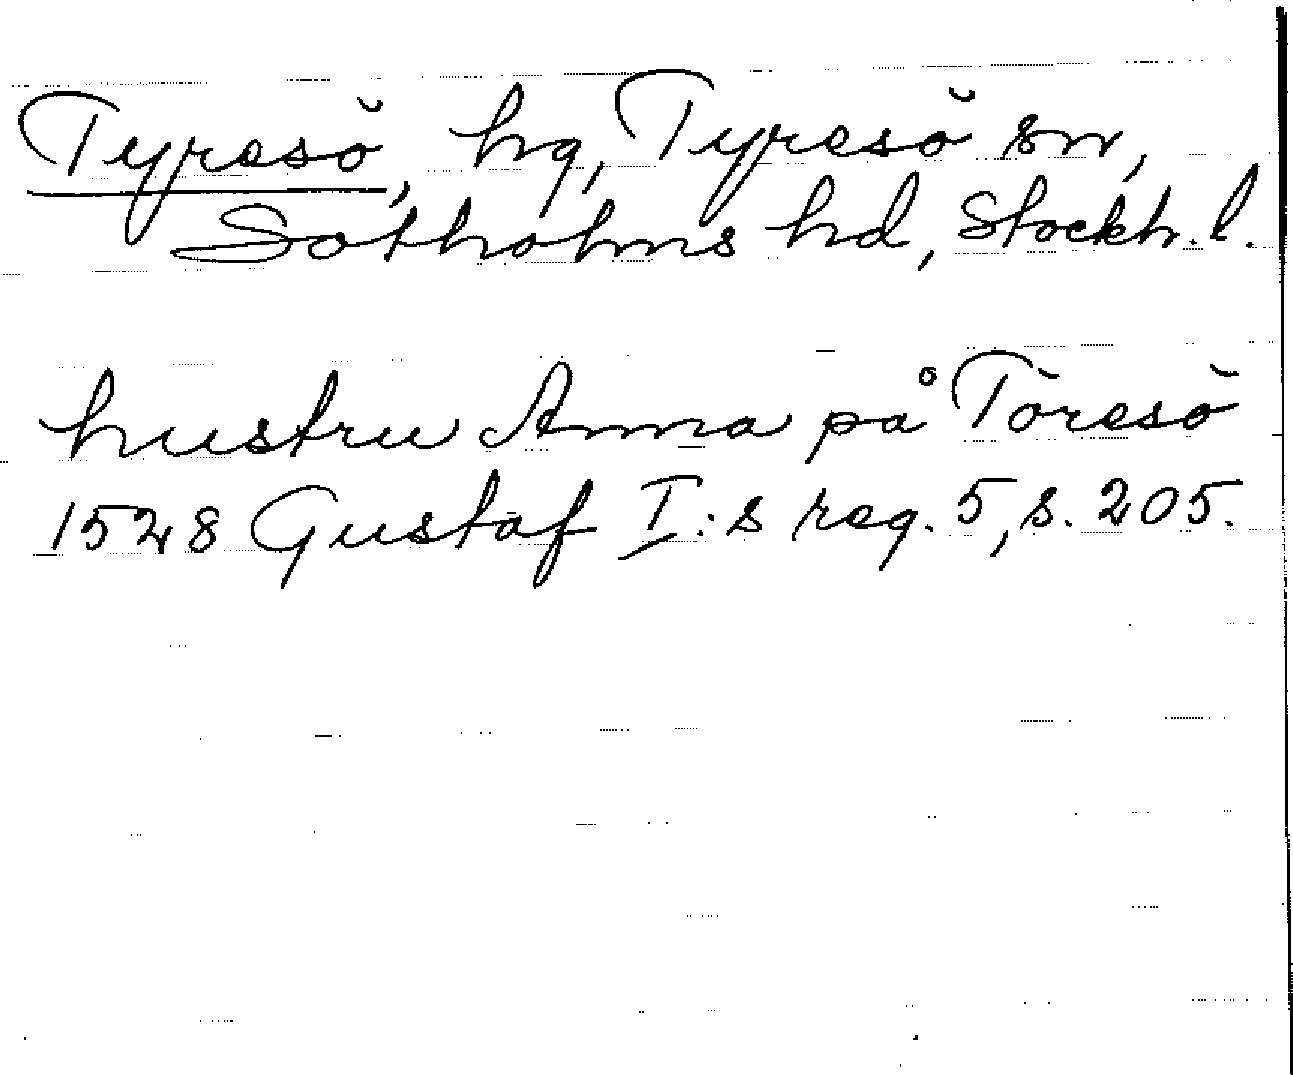 Tyresö, hg, Tyresö sn,
Sotholms hd, Stockh. l.
hustru Anna på Töresö
1528 Gustaf I:s reg. 5, s. 205.